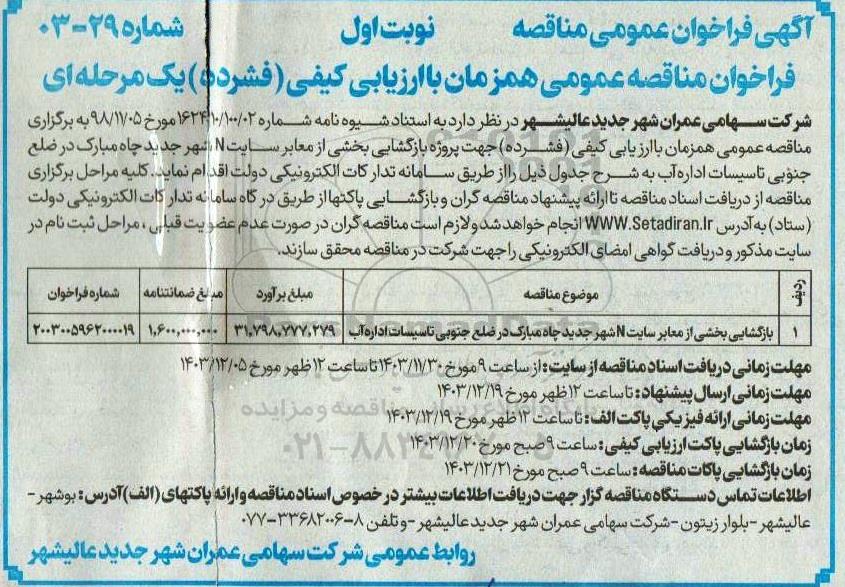 آگهی فراخوان عمومی مناقصه نوبت اول شماره ۲۹-۰۳
فراخوان مناقصه عمومی همزمان با ارزیابی کیفی (فشرده) یک مرحله ای
شرکت سهامی عمران شهر جدید عالیشهر در نظر دارد به استناد شیوه نامه شماره ۱۶۲۴/۱۰/۱۰۰/۰۲ مورخ ۹۸/۱۱/۰۵ به برگزاری
مناقصه عمومی همزمان با ارزیابی کیفی (فشرده) جهت پروژه بازگشایی بخشی از معابر سایت N شهر جدید چاه مبارک در ضلع
جنوبی تاسیسات اداره آب به شرح جدول ذیل را از طریق سامانه تدارکات الکترونیکی دولت اقدام نماید. کلیه مراحل برگزاری
مناقصه از دریافت اسناد مناقصه تا ارائه پیشنهاد مناقصه گران و بازگشایی پاکتها از طریق درگاه سامانه تدارکات الکترونیکی دولت
(ستاد) به آدرس WWW.Setadiran.Ir انجام خواهد شد و لازم است مناقصه گران در صورت عدم عضویت قبلی، مراحل ثبت نام در
سایت مذکور و دریافت گواهی امضای الکترونیکی را جهت شرکت در مناقصه محقق سازند.
ردیف موضوع مناقصه مبلغ برآورد مبلغ ضمانتنامه شماره فراخوان
۱ بازگشایی بخشی از معابر سایت N شهر جدید چاه مبارک در ضلع جنوبی تاسیسات اداره آب ۳۱,۷۹۸,۷۷۷,۲۷۹ ۱,۶۰۰,۰۰۰,۰۰۰ ۲۰۰۳۰۰۵۹۶۲۰۰۰۰۱۹
مهلت زمانی دریافت اسناد مناقصه از سایت: از ساعت ۹ مورخ ۱۴۰۳/۱۱/۳۰ تا ساعت ۱۲ ظهر مورخ ۱۴۰۳/۱۲/۰۵
مهلت زمانی ارسال پیشنهاد: تا ساعت ۱۲ ظهر مورخ ۱۴۰۳/۱۲/۱۹
مهلت زمانی ارائه فیزیکی پاکت الف: تا ساعت ۱۲ ظهر مورخ ۱۴۰۳/۱۲/۱۹
زمان بازگشایی پاکت ارزیابی کیفی: ساعت ۹ صبح مورخ ۱۴۰۳/۱۲/۲۰
زمان بازگشایی پاکات مناقصه: ساعت ۹ صبح مورخ ۱۴۰۳/۱۲/۲۱
اطلاعات تماس دستگاه مناقصه گزار جهت دریافت اطلاعات بیشتر در خصوص اسناد مناقصه و ارائه پاکتهای (الف) آدرس: بوشهر -
عالیشهر - بلوار زیتون - شرکت سهامی عمران شهر جدید عالیشهر - و تلفن ۸-۳۳۶۸۲۰۰۶-۰۷۷
روابط عمومی شرکت سهامی عمران شهر جدید عالیشهر